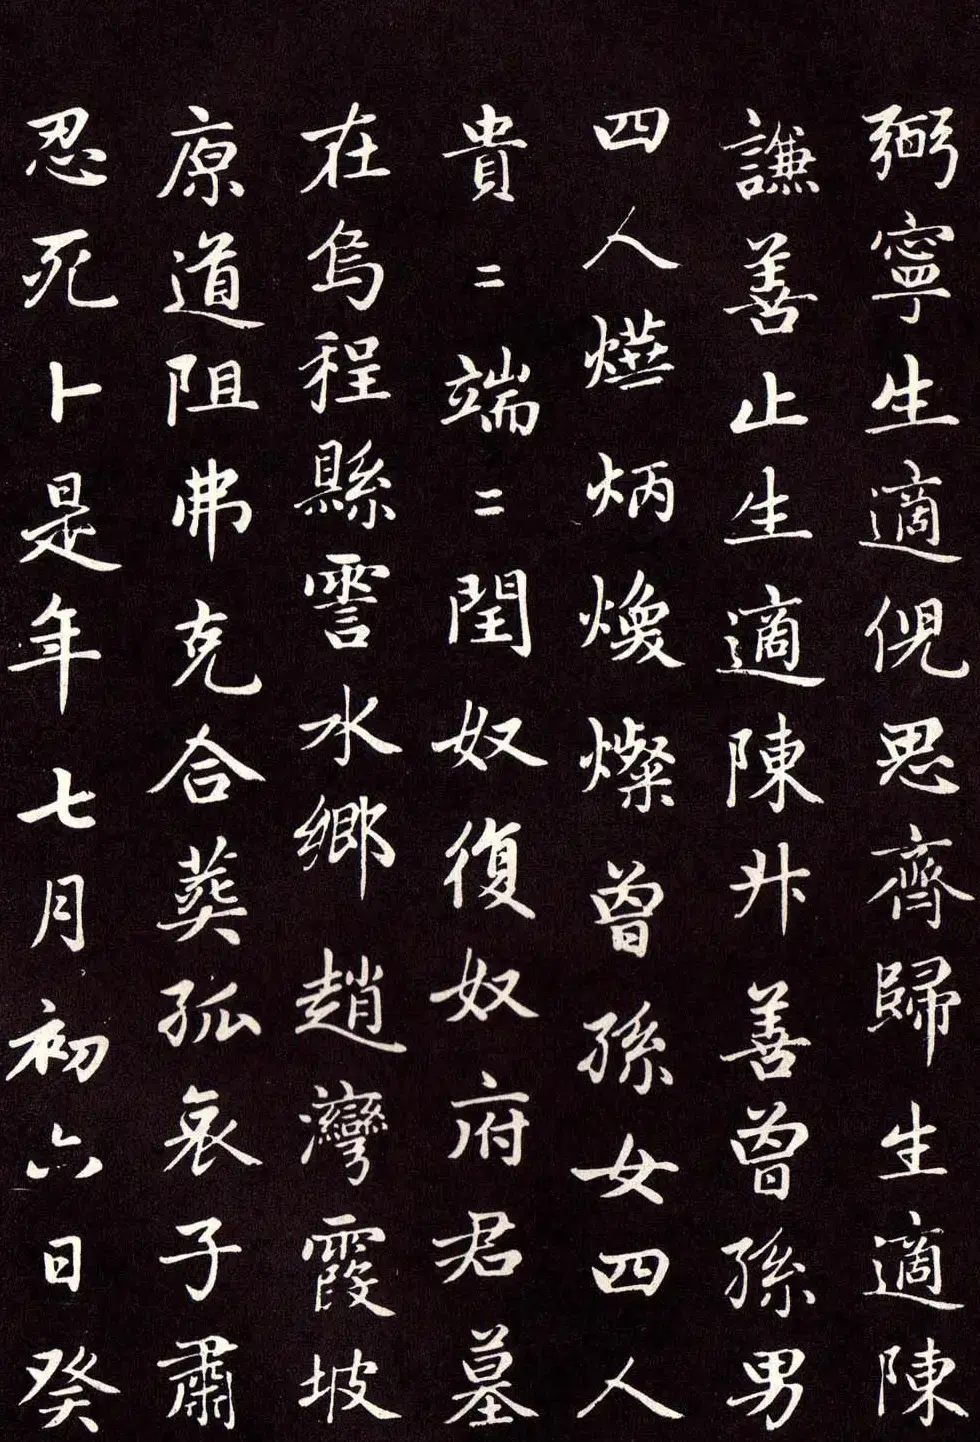 弼寧生適倪思齊歸生適陳
謙善止生適陳廾善曾孫男
四人㷼炳煥燦曾孫女四人
貴二端二閏奴復奴府君墓
在烏程縣霅水鄉趙灣霞坡
原道阻弗克合葬孤哀子肅
忍死卜是年七月初六日癸